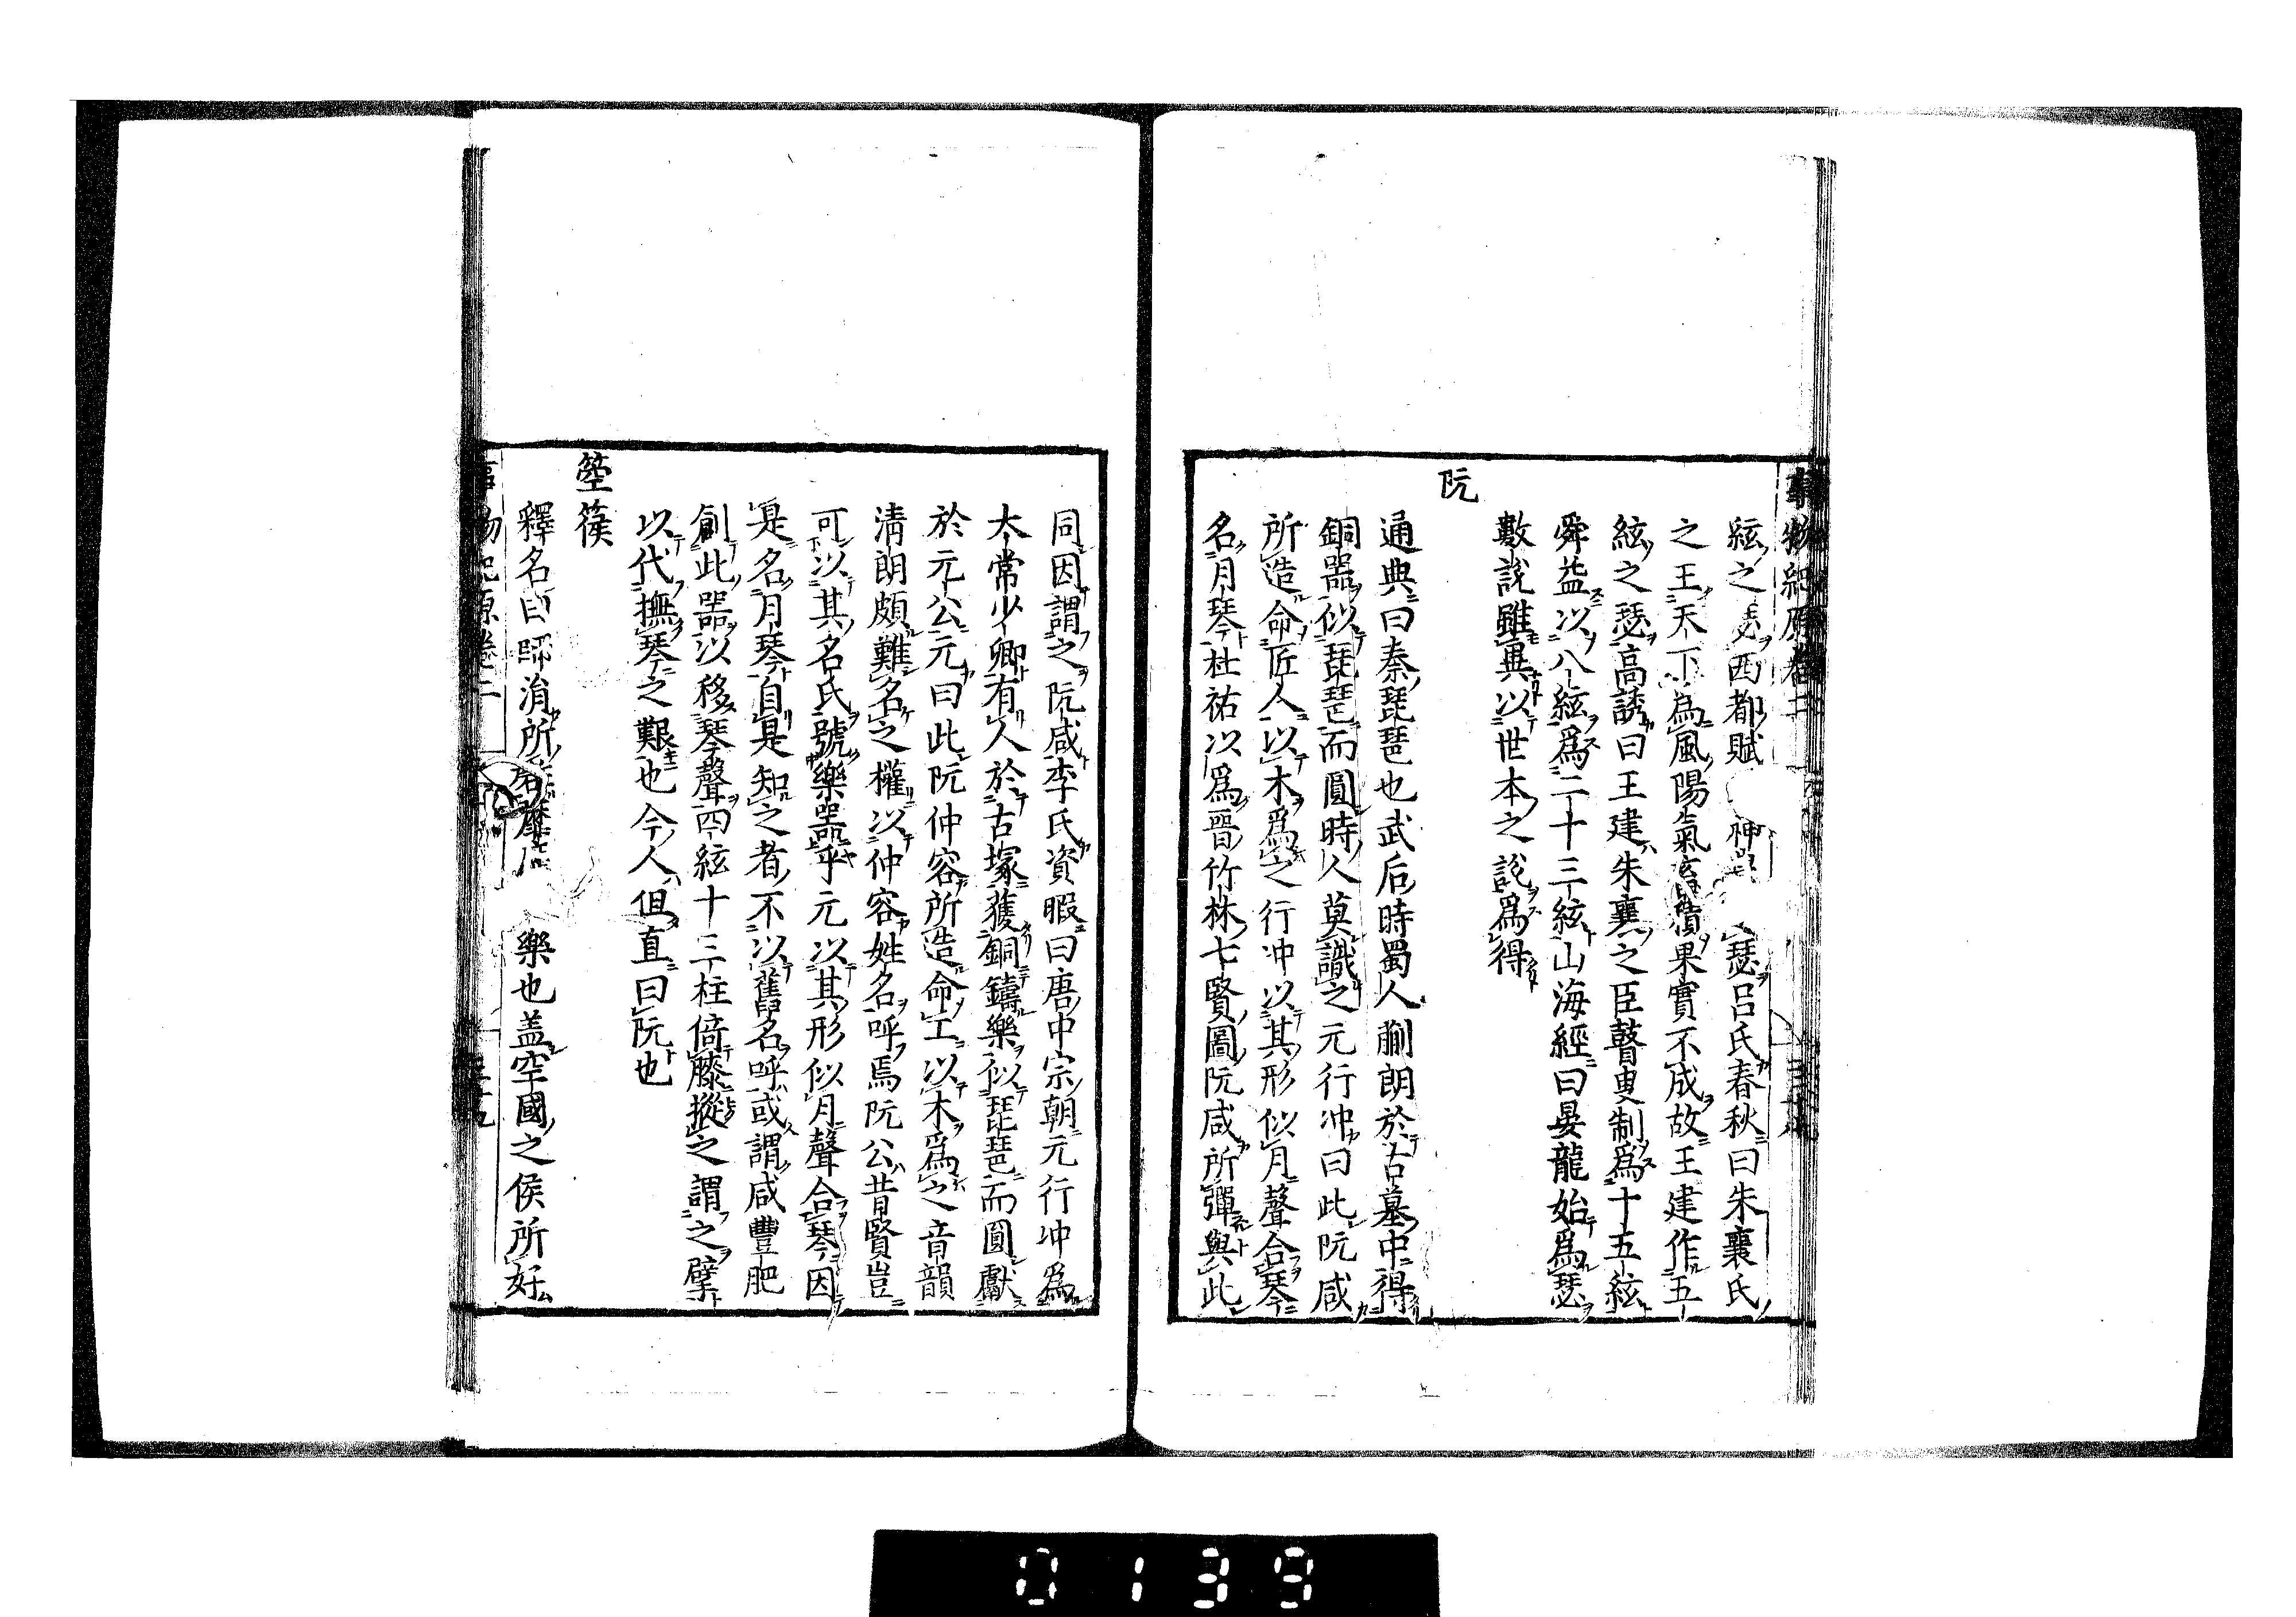 事物紀原卷二
絃之瑟西都賦神瑟呂氏春秋曰朱襄氏
之王天下為風陽氣畜積果實不成故王建作五
絃之瑟高誘曰王建朱襄之臣瞽叟制爲十五絃
舜益以八絃爲二十三絃山海經曰晏龍始爲瑟
數說雖異以世本之說爲得
阮
通典曰秦琵琶也武后時蜀人蒯朗於古墓中得
銅器似琵琶而圓時人莫識之元行冲曰此阮咸
所造命匠人以木爲之行冲以其形似月聲合琴
名月琴杜祐以爲晉竹林七賢圖阮咸所彈與此
同因謂之阮咸李氏資暇曰唐中宗朝元行冲爲
太常少卿有人於古塚獲銅鑄樂似琵琶而圓獻
於元公元曰此阮仲容所造命工以木爲之音韻
清朗頗難名之權以仲容姓名呼焉阮公昔賢豈
可以其名氏號樂器乎元以其形似月聲合琴因
是名月琴自是知之者不以舊名呼或謂咸豐肥
創此器以移琴聲四絃十三柱倚膝摐之謂之擘
以代撫琴之艱也今人但直曰阮也
箜篌
釋名曰師涓所樂也盖空國之侯所好
事物紀原卷二